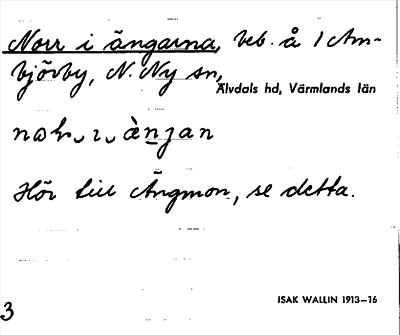 Norr i ängarna, beb. å 1 Am-
björby, N. Ny sn,
Älvdals hd, Värmlands län
Hör till Ängmon, se detta.
ISAK WALLIN 1913–16
3